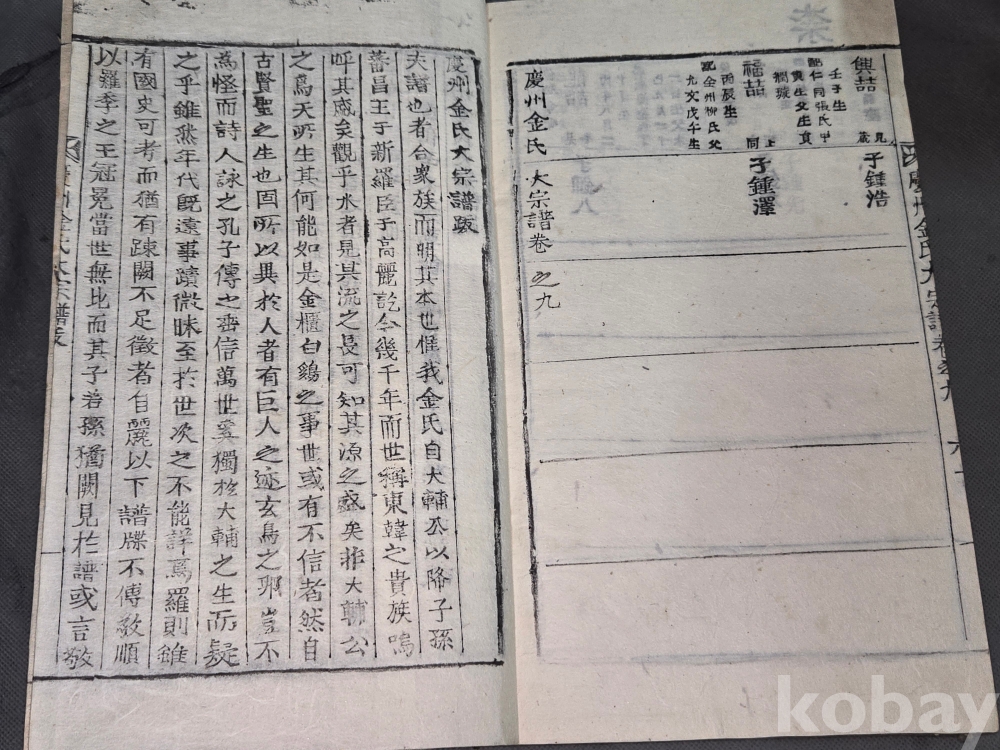 喆
子鍾浩
壬子生
配仁同張氏甲
寅生父生員
福喆
子鍾澤
丙辰生
配全州柳氏父
九文戊午生
慶州金氏大宗譜卷之九
慶州金氏大宗譜跋
夫譜也者合衆族而明其本也惟我金氏自大輔公以降子孫
蕃昌王于新羅臣于高麗訖今幾千年而世稱東韓之貴族嗚
呼其盛矣觀乎水者見其流之長可知其源之盛矣非大輔公
之爲天所生其何能如是金櫃白鷄之事世或有不信者然自
古賢聖之生也固所以異於人者有巨人之迹玄鳥之卵豈不
爲怪而詩人詠之孔子傳之垂信萬世奚獨於大輔之生而疑
之乎雖然年代旣遠事蹟微昧至於世次之不能詳焉羅則雖
有國史可考而猶有疎闕不足徵者自麗以下譜牒不傳敬順
以羅季之王冠冕當世無比而其子若孫猶闕見於譜或言敬
kobay